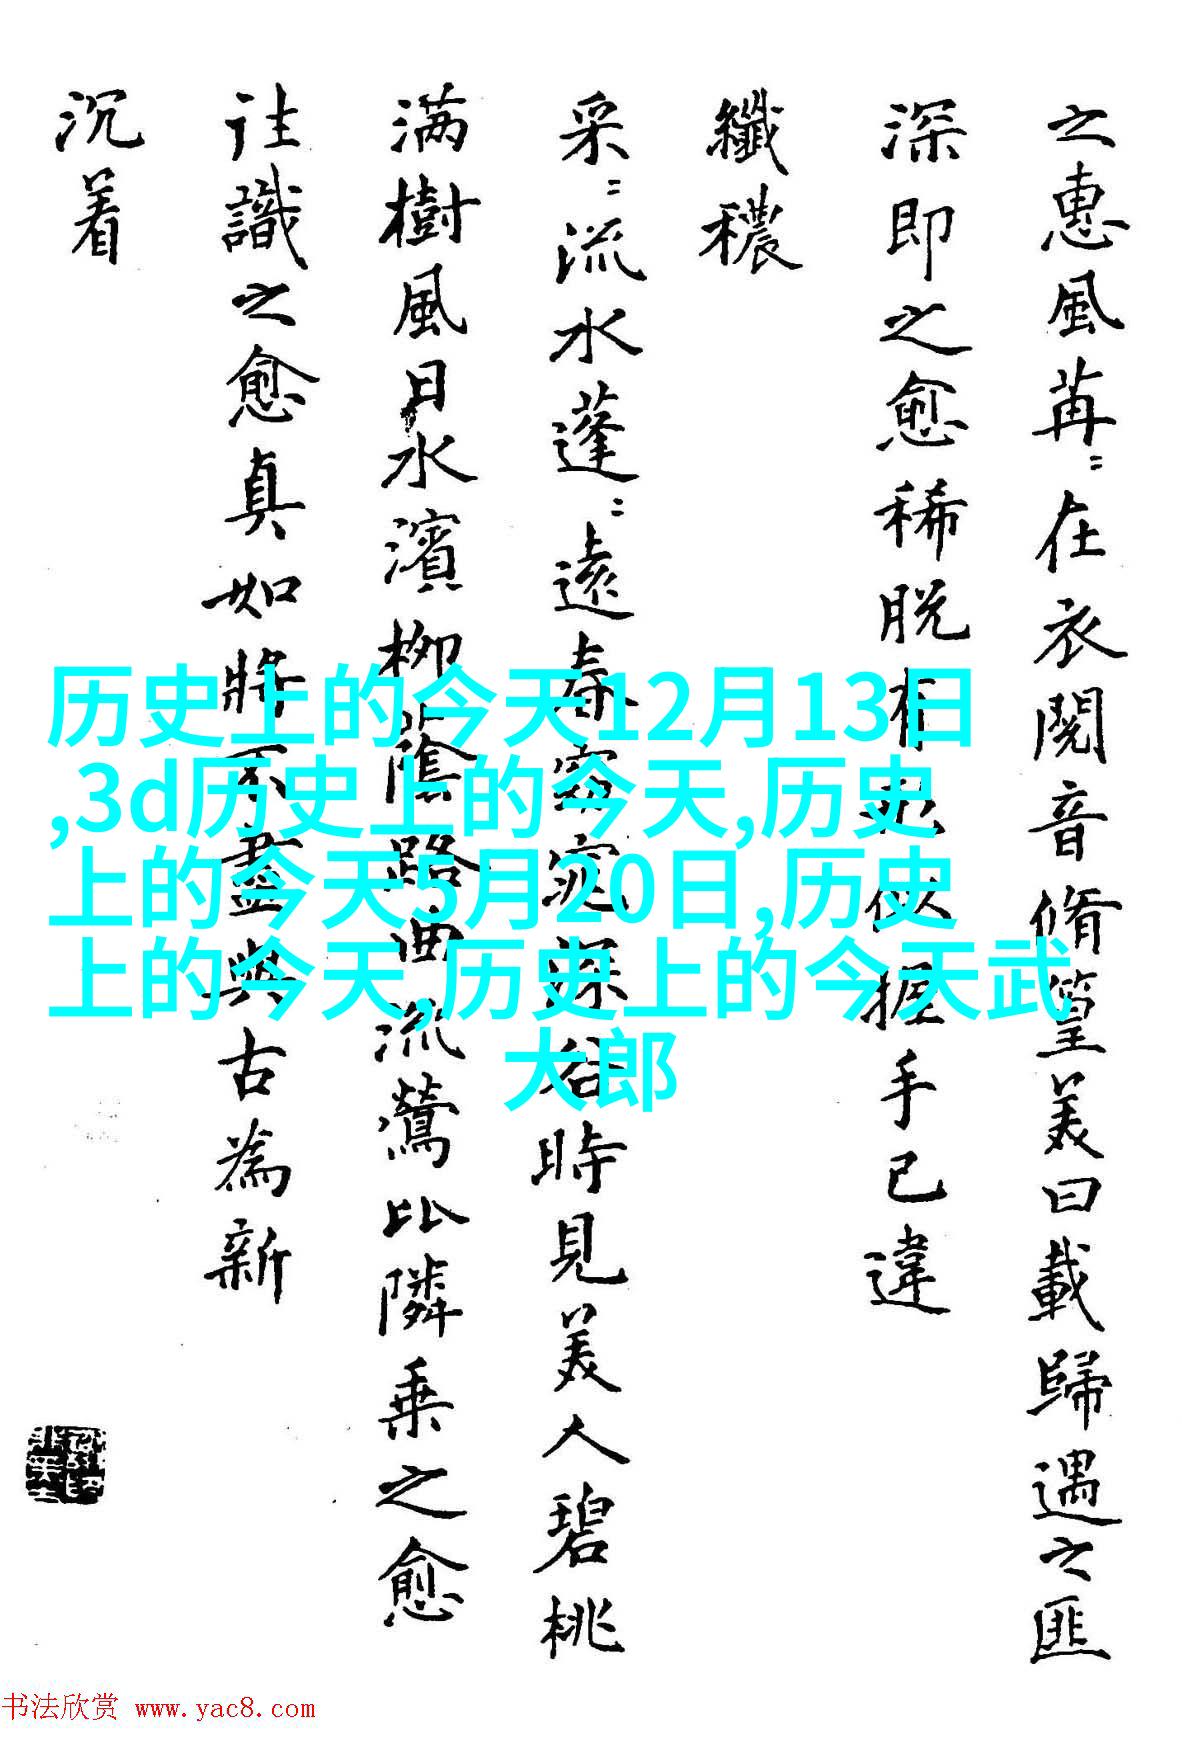 之惠風苒〻在衣閱音脩篁美曰載歸遇之匪
深即之愈稀脱有形似握手已違
纖穠
采〻流水蓬〻遠春窈窕深谷時見美人碧桃
满樹風日水濱柳蔭路曲流鶯比隣乗之愈
往識之愈真如將不盡與古為新
沉着
历史上的今天12月13日
,3d历史上的今天,历史
上的今天5月20日,历史
上的今天,历史上的今天武
大郎
书法欣赏 www.yac8.com